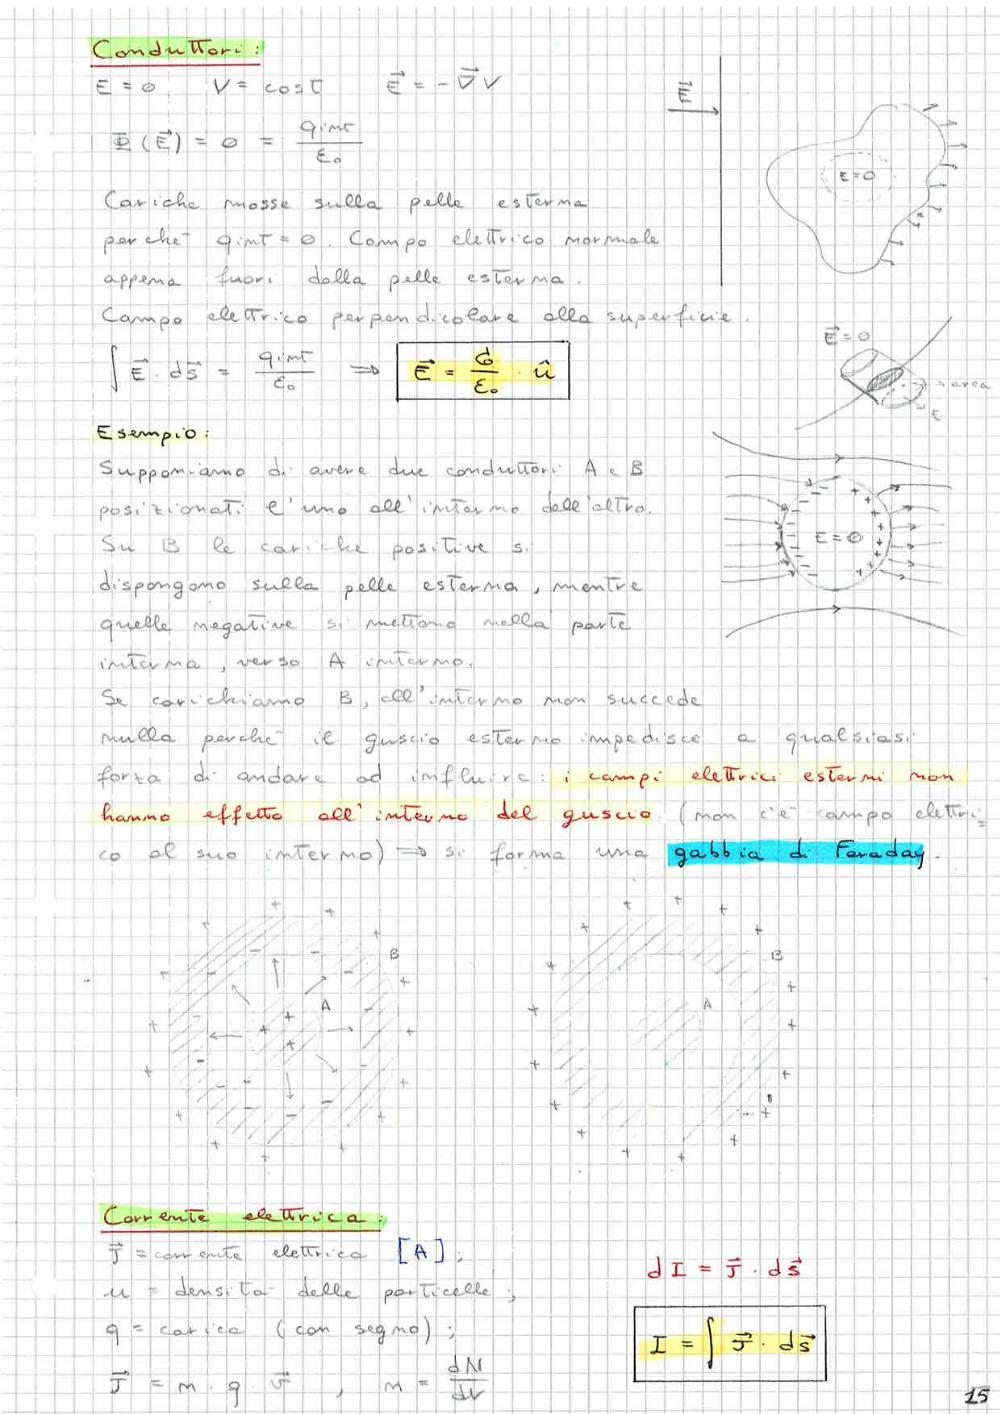 Conduttori:
E = 0 V = cost E⃗ = -∇⃗V
E⃗
Φ(E⃗) = 0 = qint/ε₀
E = 0
Cariche mosse sulla pelle esterna
perché qint = 0. Campo elettrico normale
appena fuori dalla pelle esterna.
Campo elettrico perpendicolare alla superficie.
E⃗ = 0
∫ E⃗ · ds⃗ = qint/ε₀ ⇒ E⃗ = σ/ε₀ · û
area
E
Esempio:
Supponiamo di avere due conduttori A e B
posizionati l'uno all'interno dell'altro.
E = 0
Su B le cariche positive si
dispongono sulla pelle esterna, mentre
quelle negative si mettono nella parte
interna, verso A interno.
Se carichiamo B, all'interno non succede
nulla perché il guscio esterno impedisce a qualsiasi
forza di andare ad influire: i campi elettrici esterni non
hanno effetto all'interno del guscio (non c'è campo elettri-
co al suo interno) ⇒ si forma una gabbia di Faraday.
B
A
B
A
Corrente elettrica:
J⃗ = corrente elettrica [A];
dI = J⃗ · ds⃗
n = densità delle particelle;
q = carica (con segno);
I = ∫ J⃗ · ds⃗
J⃗ = n · q · v⃗ , n = dN/dV
15